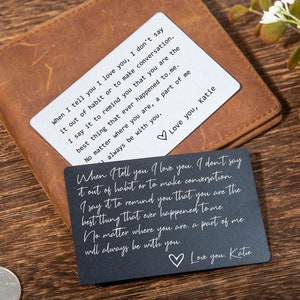 When I tell you I love you, I don't say
it out of habit or to make conversation.
I say it to remind you that you are the
best thing that ever happened to me.
No matter where you are, a part of me
l always be with you.
Love you, Katie
When I tell you I love you, I don't say
it out of habit or to make conversation.
I say it to remind you that you are the
best thing that ever happened to me.
No matter where you are, a part of me
will always be with you.
Love you, Katie